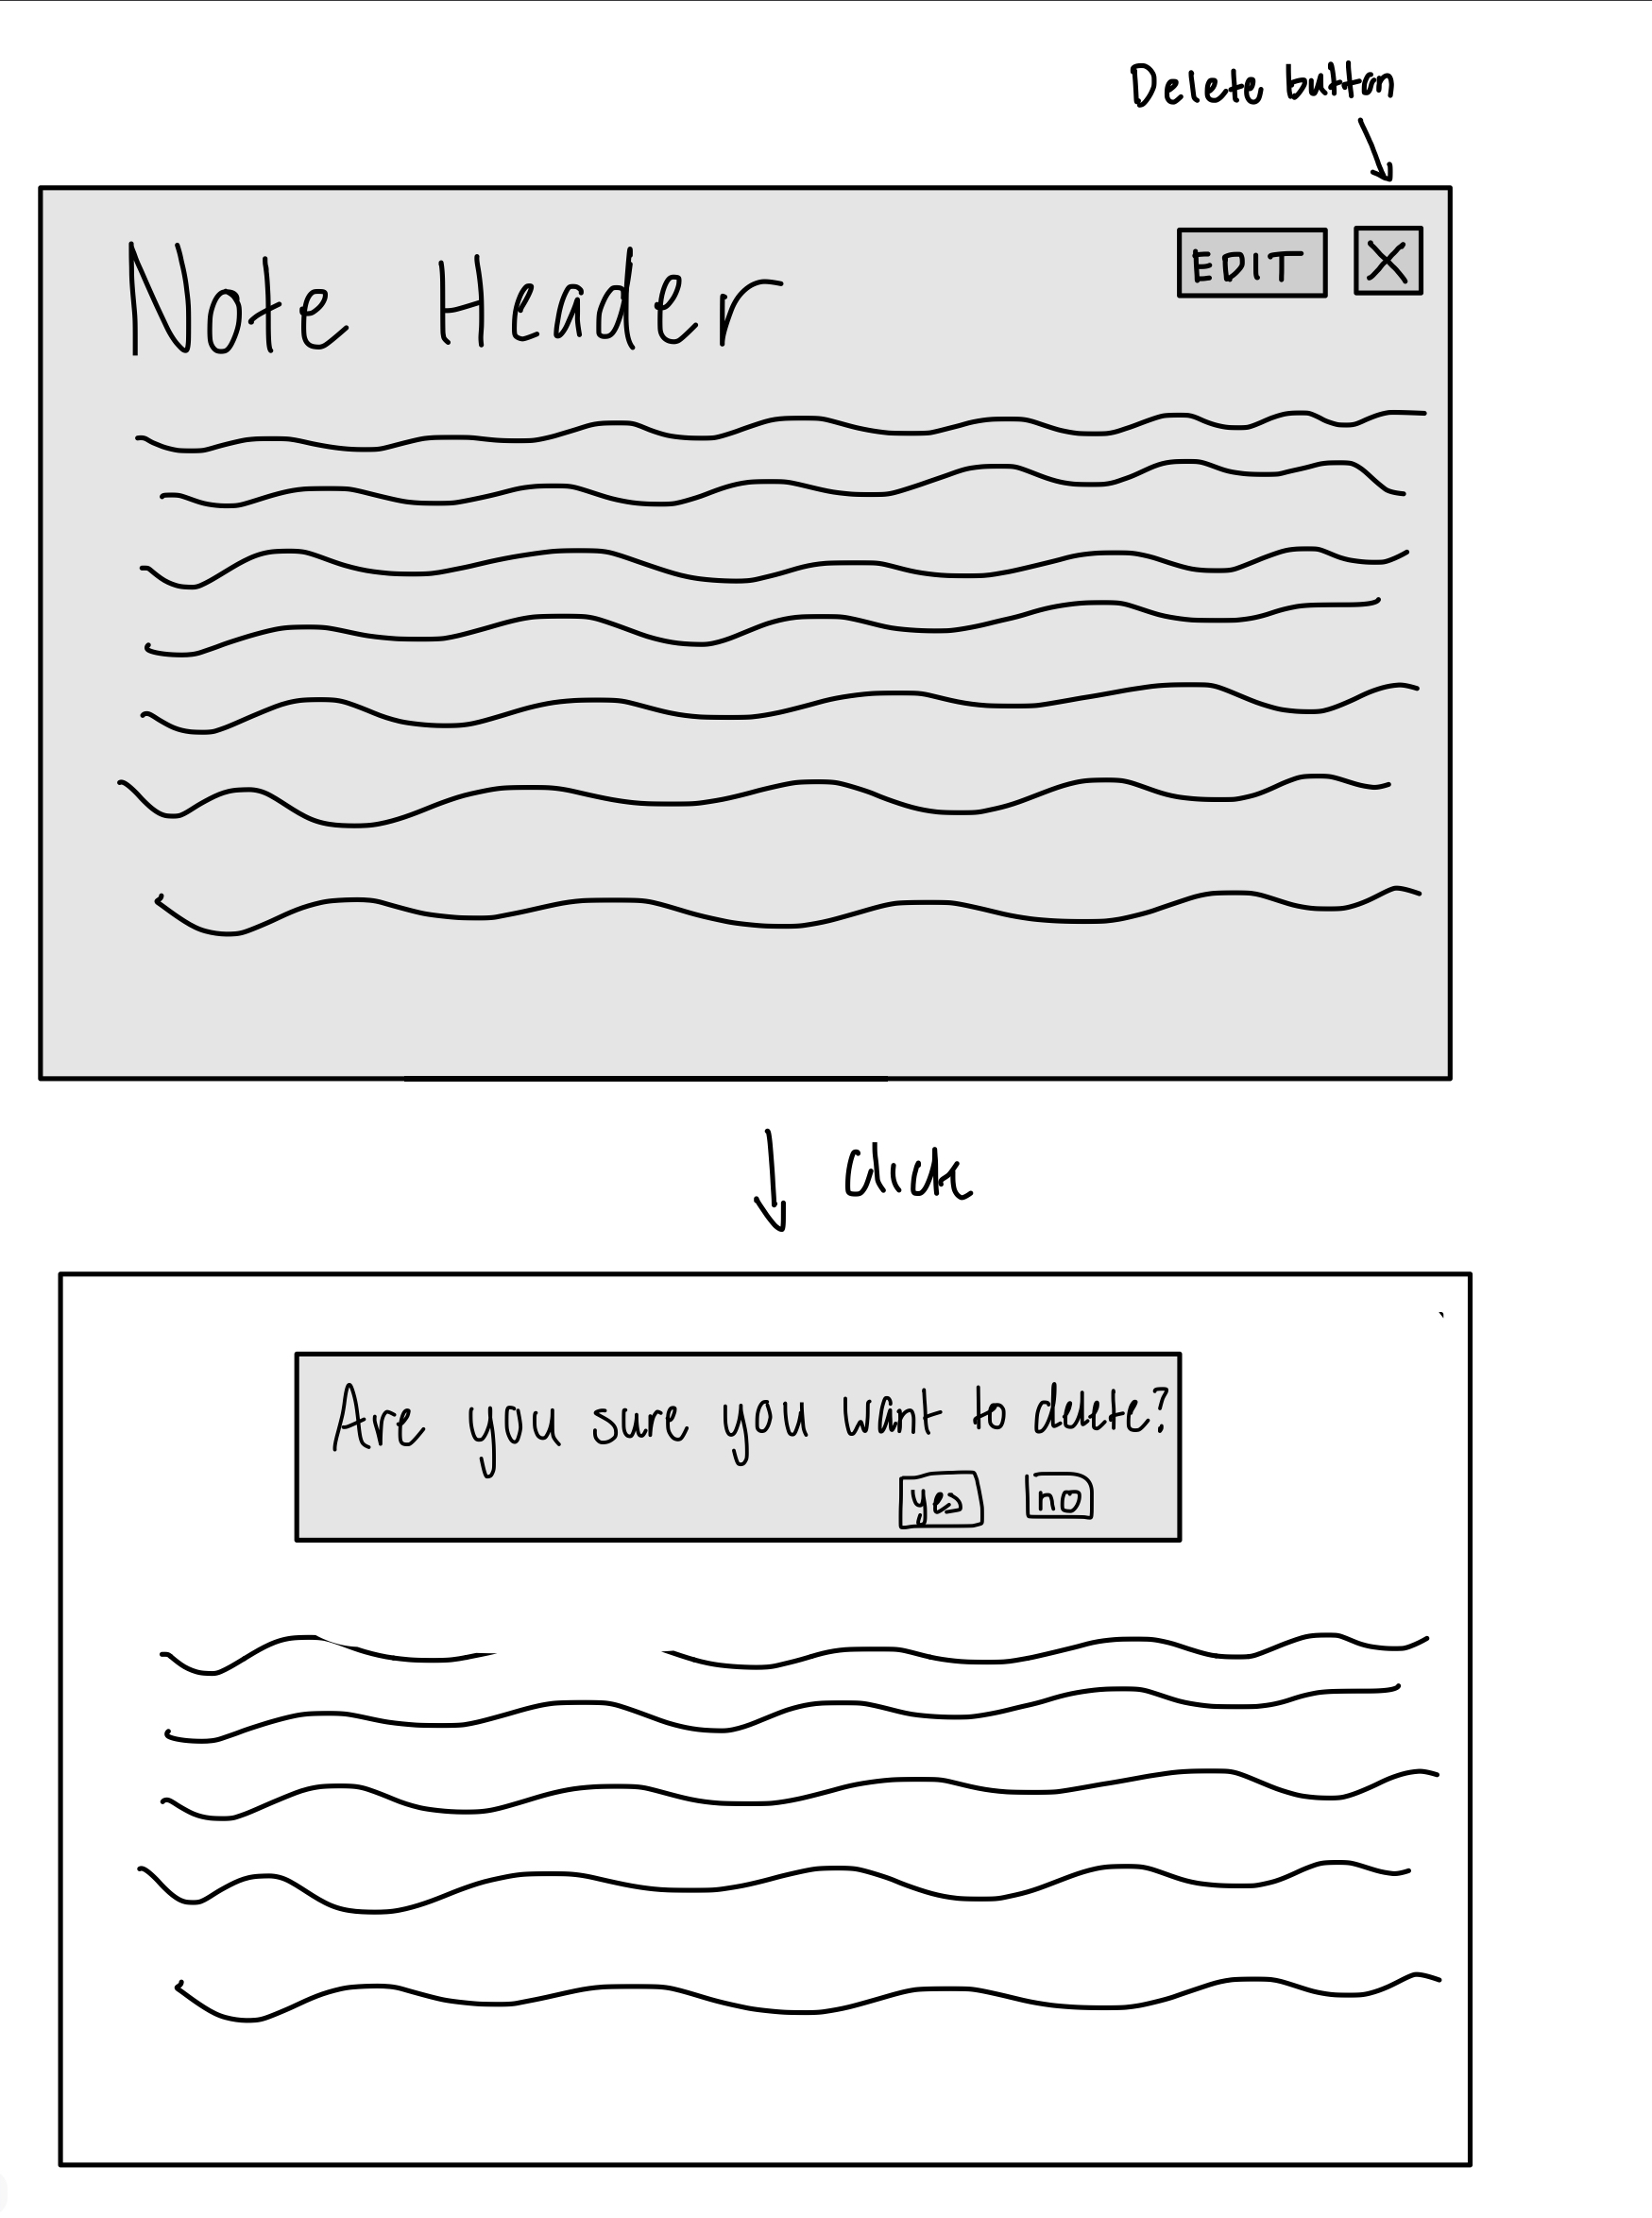 Delete button
Note Header
EDIT X
click
Are you sure you want to delete?
yes no